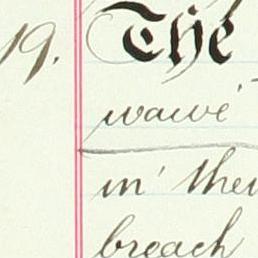 19. The
waive
in their
breach